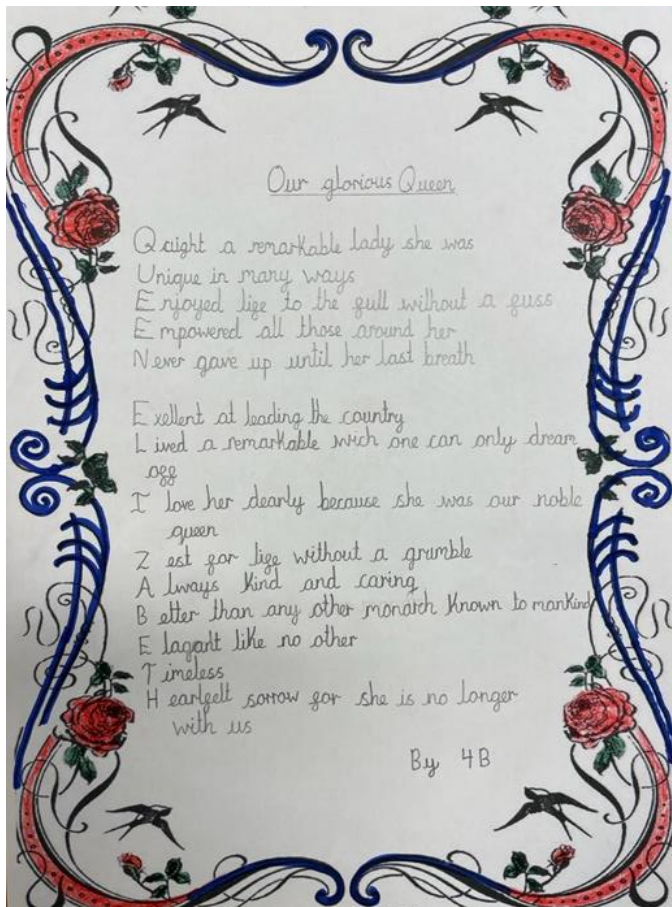 Our glorious Queen
Qaight a remarkable lady she was
Unique in many ways
Enjoyed life to the full without a fuss
Empowered all those around her
Never gave up until her last breath
Exellent at leading the country
Lived a remarkable wich one can only dream
off
I love her dearly because she was our noble
queen
Zest for life without a grumble
Always kind and caring
Better than any other monarch known to mankind
Elagant like no other
Timeless
Hearfelt sorrow for she is no longer
with us
By 4B